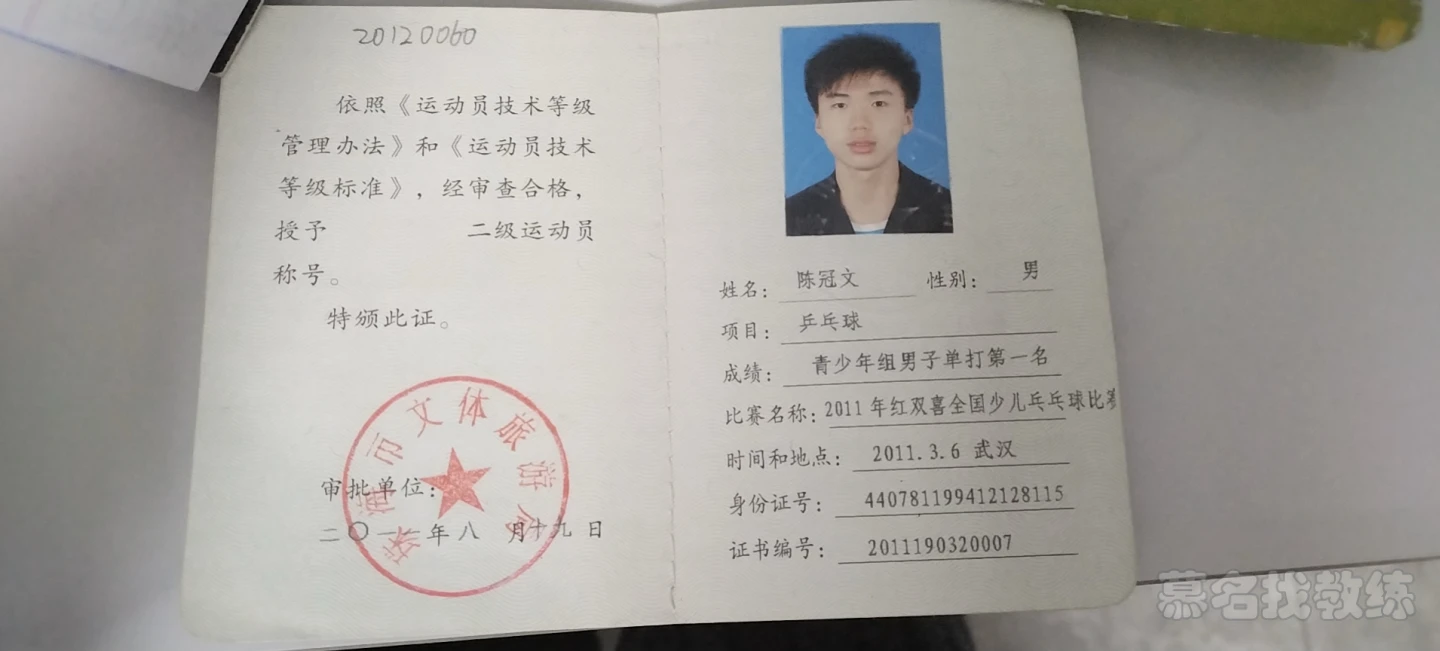 20120060
依照《运动员技术等级
管理办法》和《运动员技术
等级标准》，经审查合格，
授予 二级运动员
称号。
特颁此证。
珠海市文体旅游局
审批单位：
二〇一一年八 月十九日
姓名： 陈冠文 性别： 男
项目： 乒乓球
成绩： 青少年组男子单打第一名
比赛名称：2011年红双喜全国少儿乒乓球比赛
时间和地点： 2011.3.6 武汉
身份证号： 440781199412128115
证书编号： 2011190320007
慕名找教练